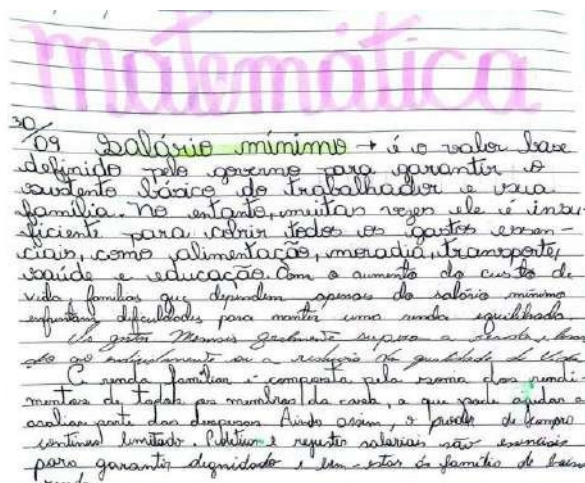 Matemática
30/09 Salário mínimo → é o valor base
definido pelo governo para garantir o
sustento básico do trabalhador e sua
família. No entanto, muitas vezes ele é insu-
ficiente para cobrir todos os gastos essen-
ciais, como alimentação, moradia, transporte,
saúde e educação. Com o aumento do custo de
vida, famílias que dependem apenas do salário mínimo
enfrentam dificuldades para manter uma renda equilibrada
Os gastos mensais geralmente supera a renda, levan
do ao endividamento ou a redução na qualidade de vida.
A renda familiar é composta pela soma dos rendi
mentos de todos os membros da casa, o que pode ajudar a
parte das despesas Ainda assim, o poder de compra
continua limitado. e salariais são essenciais
para garantir dignidade e bem-estar às família de baixa